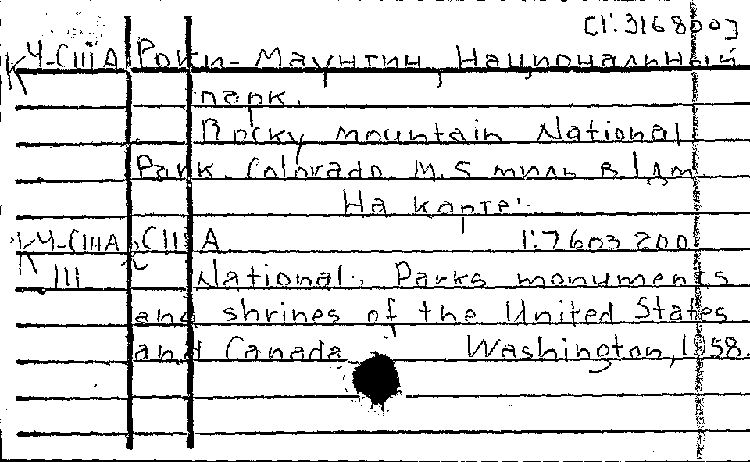 [1:316800]
К Ч-СШ А Роки-Маунтин, Национальный
парк.
Rocky mountain National
Park. Colorado. М. 5 миль в 1 дм
На карте:
К Ч-США США 1:7603 200
III National Parks monuments
and shrines of the United States
and Canada Washington, 1958.